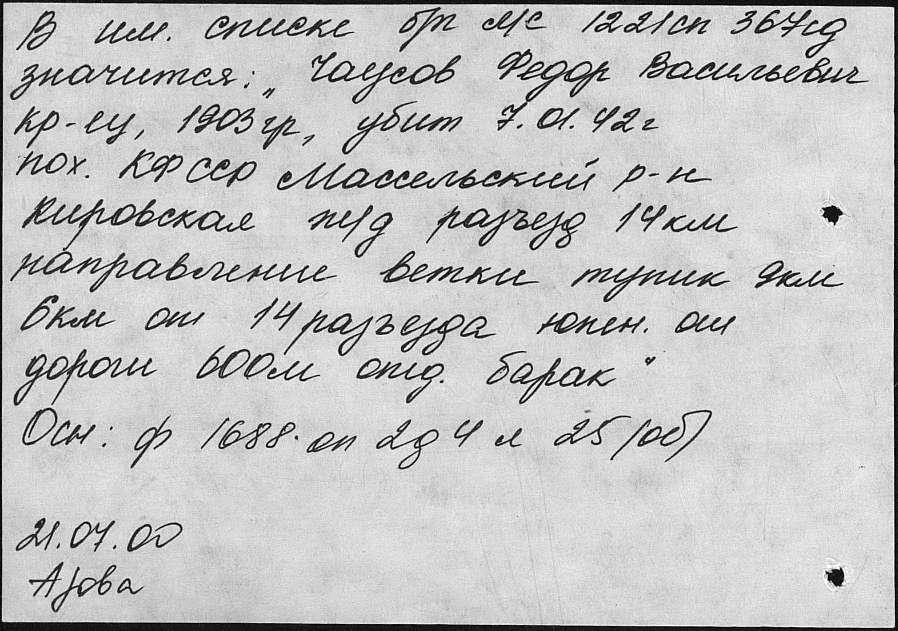 В им. списке б/п м/с 1221сп 367сд
значится: „Чаусов Федор Васильевич
кр-ец, 1903гр, убит 7.01.42г
пох. КФССР Массельский р-н
Кировская ж/д разъезд 14км
направление ветки тупик 9км
6км от 14 разъезда южн. от
дороги 600м отд. барак"
Осн: ф 1688. оп 2 д 4 л 25 (об)
21.07.00